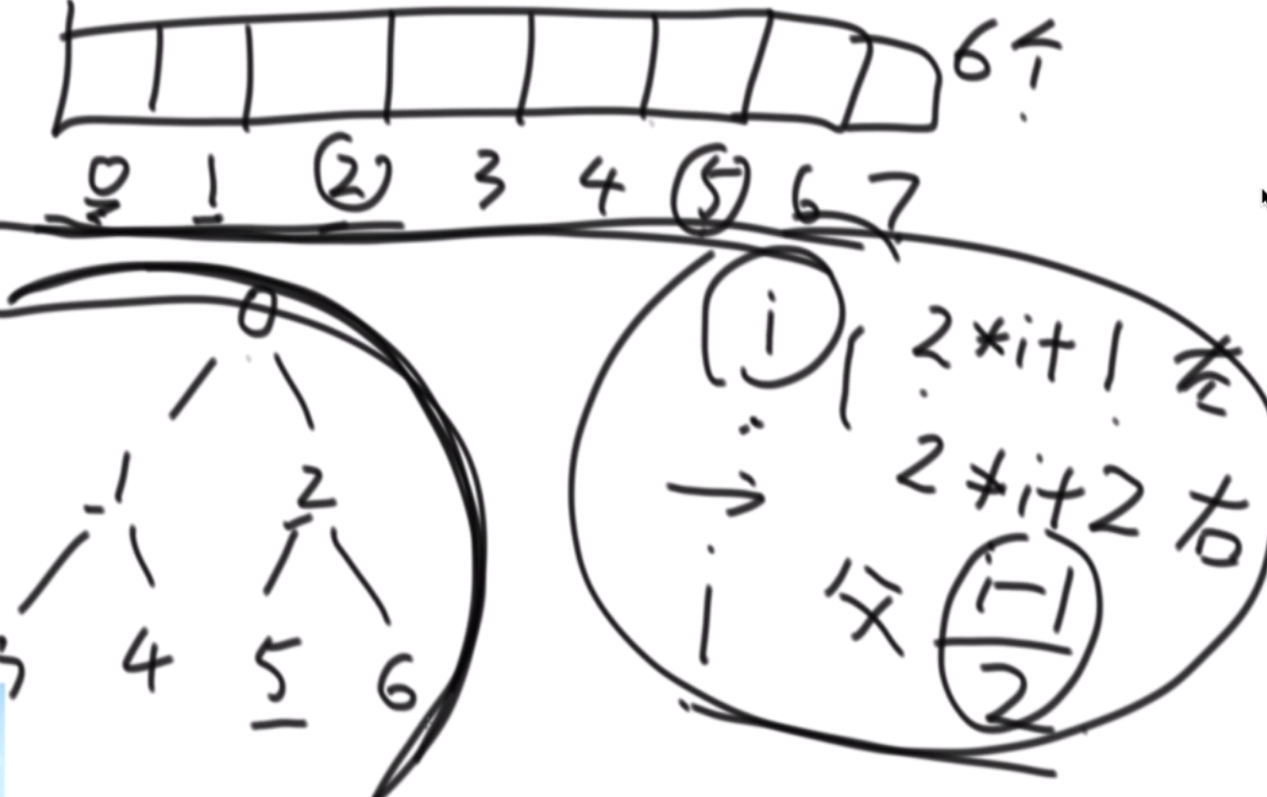 6个
0 1 2 3 4 5 6 7
0
1 2
4 5 6
i 2*i+1 左
2*i+2 右
i 父 i-1
2